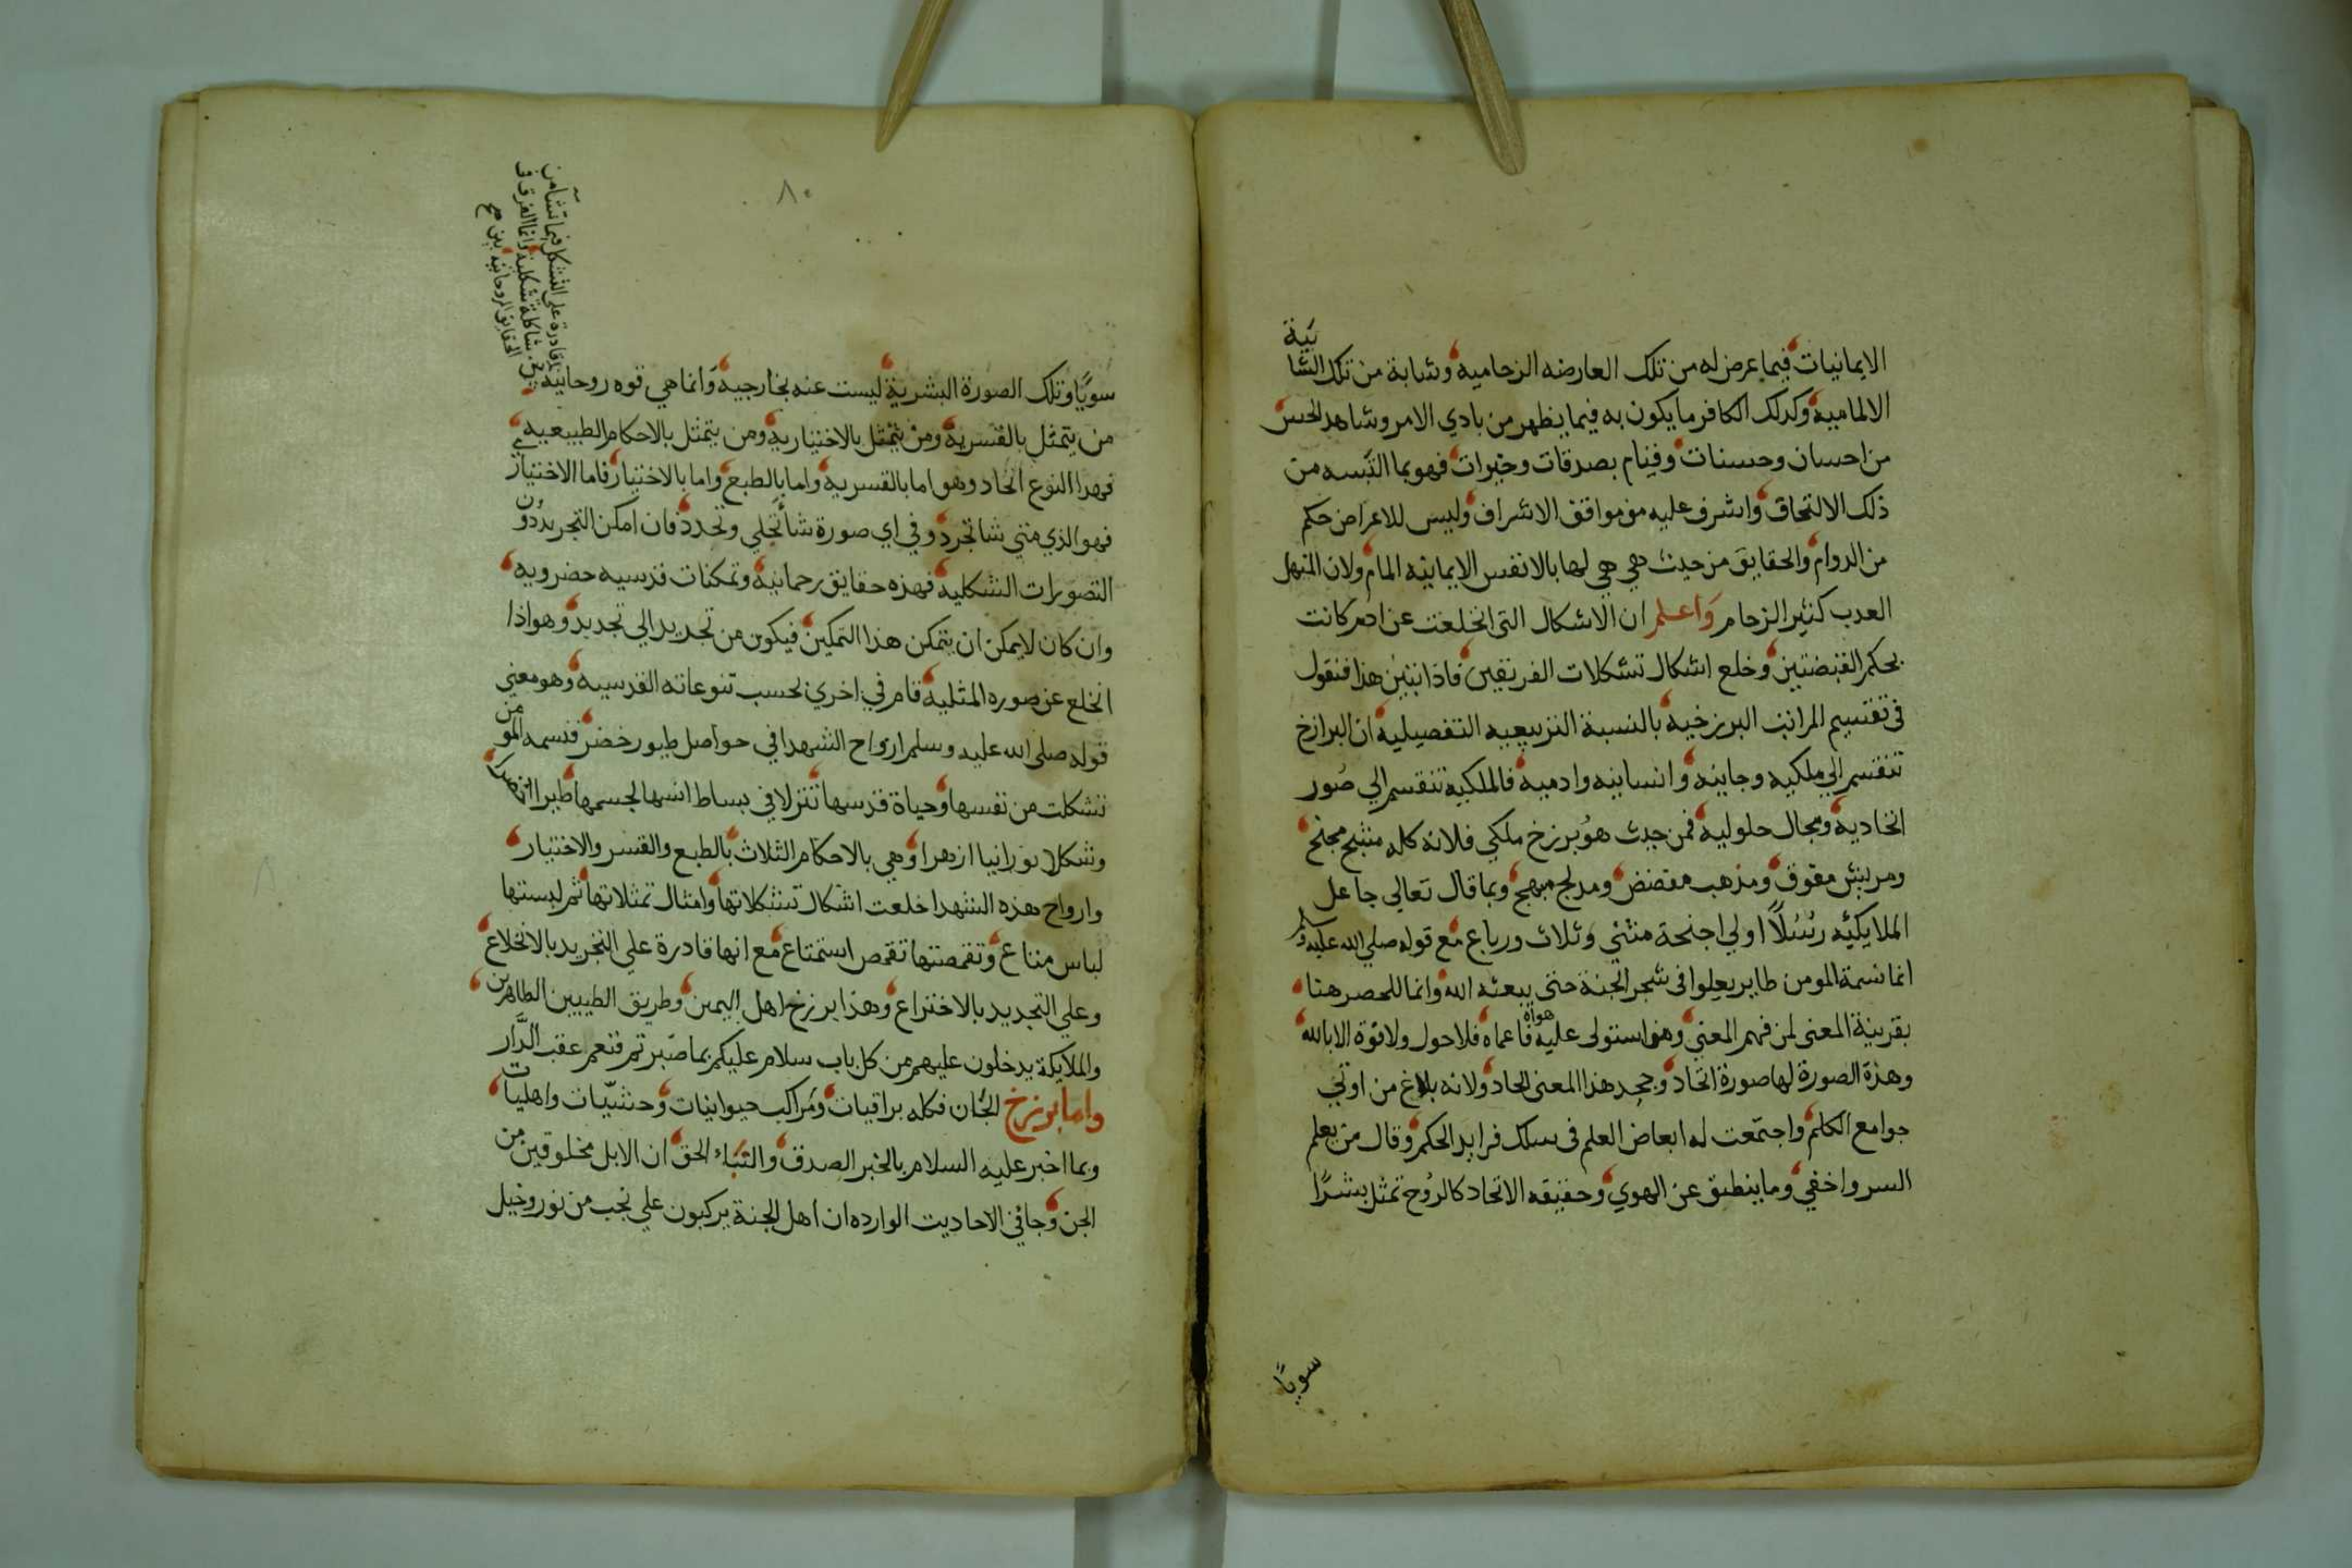 الايمانيات فيما يعرض له من تلك العارضه الزحاميه وشابة من تلك الشا
ئبة
الالماميه وكذلك الكافر ما يكون به فيما يظهر من بادي الامر وشاهد الحس
من احسان وحسنات وقيام بصدقات وخيرات فهو بما التبسه من
ذلك الالتحاق واشرف عليه من مواقف الاشراف وليس للاعراض حكم
من الدوام والحقايق من حيث هي هي لها بالانفس الايمانيه المام ولان المنهل
العذب كثير الزحام واعلم ان الاشكال التي انخلعت عن ادم كانت
بحكم القبضتين وخلع اشكال تشكلات الفريقين فاذا تبين هذا فنقول
في تقسيم المراتب البرزخيه بالنسبة التربيعيه التفصيليه ان البرازخ
تنقسم الي ملكيه وجانيه وانسانيه وادميه فالملكيه تنقسم الي صور
اتحاديه ومجال حلوليه فمن حيث هو برزخ ملكي فلانه كله مجنح
ومريش مفوف ومذهب مفضض ومدبج مبهج وبما قال تعالي جاعل
الملايكيه رسلا اولي اجنحة مثني وثلاث ورباع مع قوله صلي الله عليه وسلم
انما نسمة المومن طاير يعلوا في شجر الجنة حتي يبعثه الله وانما للحصر هنا
بقرينة المعني لمن فهم المعني ومن استولي عليه هواه فاعماه فلا حول ولا قوة الا بالله
وهذة الصورة لها صورة اتحاد وجحد هذا المعني الحاد ولانه بلاغ من اوتي
جوامع الكلم واجتمعت له ابعاض العلم في سلك فرايد الحكم وقال من يعلم
السر واخفي وما ينطق عن الهوي وحقيقه الاتحاد كالروح تمثل بشرا
سويا
٨٠
سويا وتلك الصورة البشرية ليست عنه بخارجيه وانما هي قوه روحانيه
قادرة علي التشكل فيما تشا من
شاكلة شكلية وانما الفرق في
الحقايق الروحانيه بين
من يتمثل بالقسريه ومن يتمثل بالاختياريه ومن يتمثل بالاحكام الطبيعيه
فهذا النوع اتحاد وهو اما بالقسريه واما بالطبع واما بالاختيار فاما الاختيار
فهو الذي متي شا تجرد وفي اي صورة شا تجلي وتحدد فان امكن التجريد دون
التصورات الشكليه فهذه حقايق رحمانيه وتمكنات قدسيه حضرويه
وان كان لا يمكن ان يتمكن هذا التمكين فيكون من تحديد الي تجديد وهو اذا
انخلع عن صوره المثليه قام في اخري بحسب تنوعاته القدسيه وهو معني
قوله صلي الله عليه وسلم ارواح الشهدا في حواصل طيور خضر فنسمه المومن
تشكلت من نفسها وحياة قدسها تنزلا في بساط انسها لجسمها طيرا اخضرا
وشكلا نورانيا ازهرا وهي بالاحكام الثلاث بالطبع والقسر والاختيار
وارواح هذه الشهدا خلعت اشكال تشكلاتها وامثال تمثلاتها ثم لبستها
لباس متاع وتقمصتها تقمص استمتاع مع انها قادرة علي التجريد بالانخلاع
وعلي التجديد بالاختراع وهذا برزخ اهل اليمين وطريق الطيبين الطاهرين
والملايكة يدخلون عليهم من كل باب سلام عليكم بما صبرتم فنعم عقب الدار
واما برزخ الجان فكله براقيات ومراكب حيوانيات وحشيات واهليات
وبما اخبر عليه السلام بالخبر الصدق والنباء الحق ان الابل مخلوقين من
الجن وجا في الاحاديث الوارده ان اهل الجنة يركبون علي نجب من نور وخيل